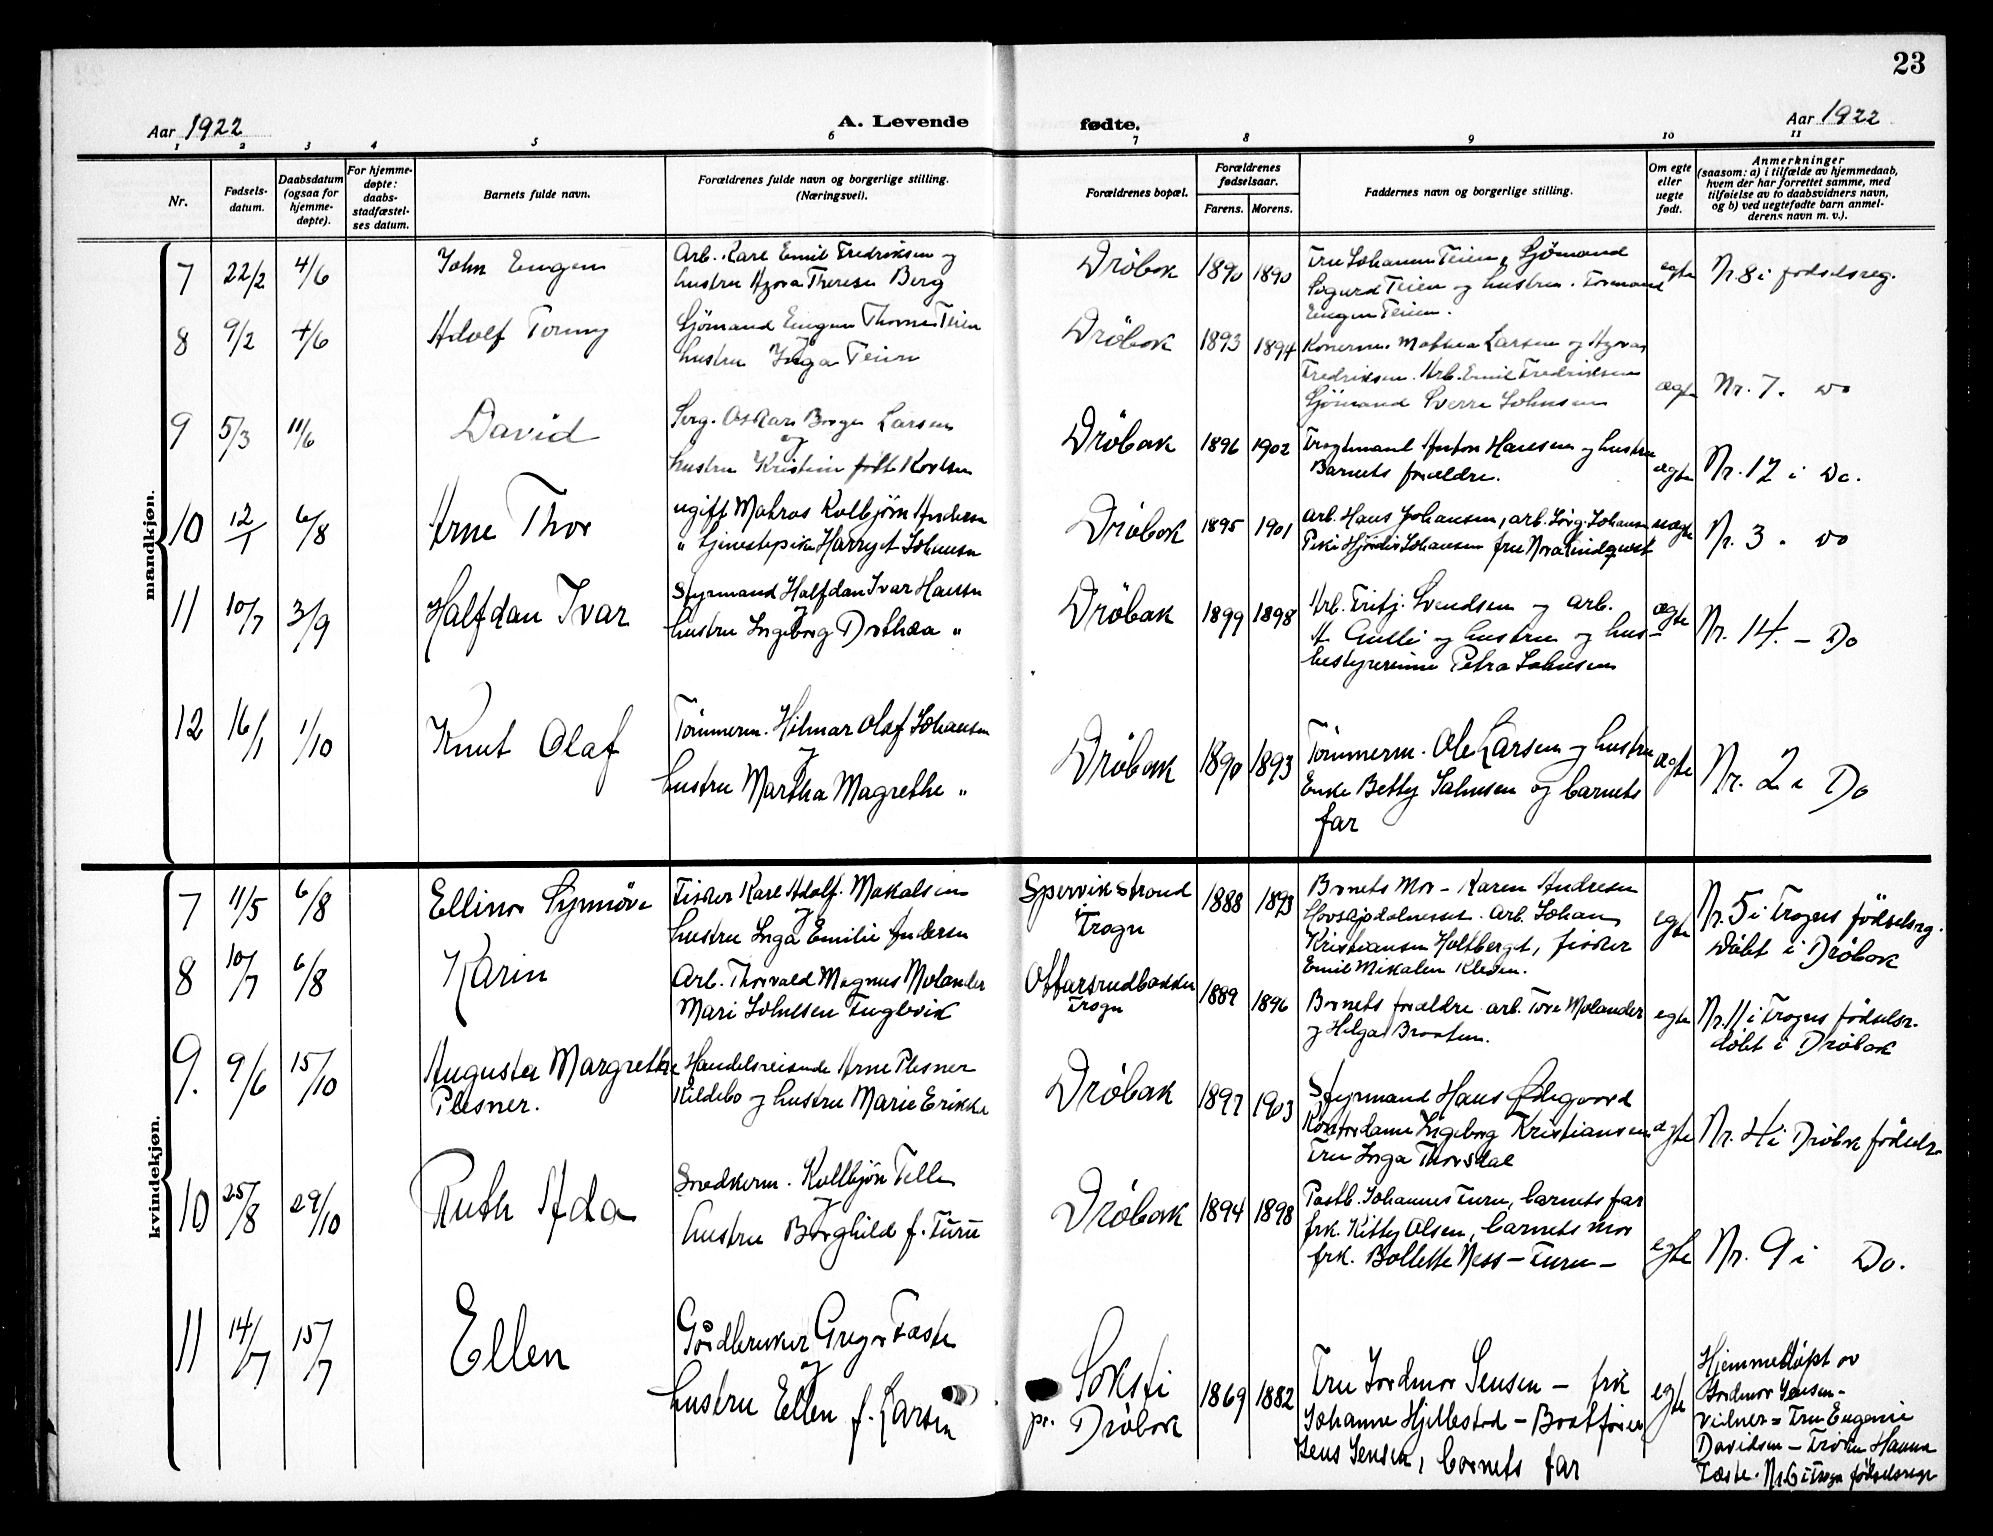 23
Aar 1922
A. Levende
fødte.
Aar 1922
1 2 3 4 5 6 7 8 9 10 11
Nr.
Fødsels-
datum.
Daabsdatum
(ogsaa for
hjemme-
døpte).
For hjemme-
døpte:
daabs-
stadfæstel-
ses datum.
Barnets fulde navn.
Forældrenes fulde navn og borgerlige stilling.
(Næringsvei).
Forældrenes bopæl.
Forældrenes
fødselsaar.
Farens. Morens.
Faddernes navn og borgerlige stilling.
Om egte
eller
uegte
født.
Anmerkninger
(saasom: a) i tilfælde av hjemmedaab,
hvem der har forrettet samme, med
tilføielse av to daabsvidners navn,
og b) ved uegtefødte barn anmel-
derens navn m. v.).
mandkjøn.
7 22/2 4/6 John Eugen
Arb. Karl Emil Fredriksen og
hustru Azora Therese Berg
Drøbak 1890 1890
Fru Johanna Teien, Sjømand
Sigurd Teien og hustru. Formand
Eugen Teien.
egte
Nr. 8 i fødselsreg.
8 9/2 4/6 Adolf Tormy
Sjømand Eugen Thorne Teien
og
hustru Inga Teien
Drøbak 1893 1894
Konerne Mathea Larsen og Azora
Fredriksen. Arb. Emil Fredriksen
Sjömand Sverre Johnsen
ægte
Nr. 7. do
9 5/3 11/6 David
Serg. Oskar Borger Larsen
og
hustru Kristine født
Drøbak 1896 1902
Anton Hansen og hustru
Barnets forældre.
ægte
Nr. 12 i Do.
10 12/1 6/8 Arne Thor
ugift Matros Kolbjørn Andersen
" tjenestepike Harryet Johansen
Drøbak 1895 1901
Arb. Hans Johansen, arb. Jörg. Johansen
Pike Hjørdis Johansen fru Nora Lindqvist
uægte
Nr. 3. do
11 10/7 3/9 Halfdan Ivar
Styrmand Halfdan Ivar Hansen
og
hustru Ingeborg Dorthea "
Drøbak 1899 1898
Arb. Fritj. Svendsen og arb.
A. Gulli og hustru og hus-
bestyrerinne Petra Johnsen
ægte
Nr. 14. – Do
12 16/1 1/10 Knut Olaf
Tømmerm. Hilmar Olaf Johansen
og
hustru Martha Magrethe "
Drøbak 1890 1893
Tømmerm. Ole Larsen og hustru
Enke Betty Salmsen og barnets
far
ægte
Nr. 2 i Do
kvindekjøn.
7 11/5 6/8 Ellinor Synnöve
Fisker Karl Adolf. Mikalsen
og
hustru Inga Emilie Andersen
Spervikstrand
i
Frogn
1888 1893
Barnets Mor – Karen Andresen
arb. Johan
Kristiansen Holtbergt, fisker
Emil Mikalsen
egte
Nr. 5 i Frogns fødselsreg.
Döbt i Drøbak
8 10/7 6/8 Karin
Arb. Thorvald Magnus Molander
Mari Johnsen Fuglevik
Ottarsrudbakken
Frogn
1889 1896
Barnets forældre. arb. Tore Molander
og Helga Braaten.
egte
Nr. 11 i Frogns fødselsr.
döbt i Drøbak
9. 9/6 15/10 Augusta Margrethe
Plesner.
Handelsreisende Arne Plesner
Kildebo og hustru Marie Erikke
Drøbak 1897 1903
Styrmand Hans Ødegaard
Kontordame Ingeborg Kristiansen
Fru Inga Thorsdal
ægte
Nr. 4 i Drøbak födselsr.
10 25/8 29/10 Ruth Ada
Snedkerm. Kolbjørn Telle
og
hustru Borghild f. Furu
Drøbak 1894 1898
Postb. Johannes Furu, barnets far
frk. Kitty Olsen, barnets mor
frk. Bollette Ness – Furu –
egte
Nr. 9 i Do.
11 14/7 15/7 Ellen
Gårdbruker Gregor Faste
og
hustru Ellen f. Larsen
Soksti
pr. Drøbak
1869 1882
Fru Jordmor Jensen – frk
Johanne Hjellestad –
Jens Jensen, barnets far
egte
Hjemmedøpt av
Jordmor Jensen –
vidner = Fru Eugenie
Davidsen – Frøken Hanna
Faste. Nr. 6 i Frogn fødselsreg.